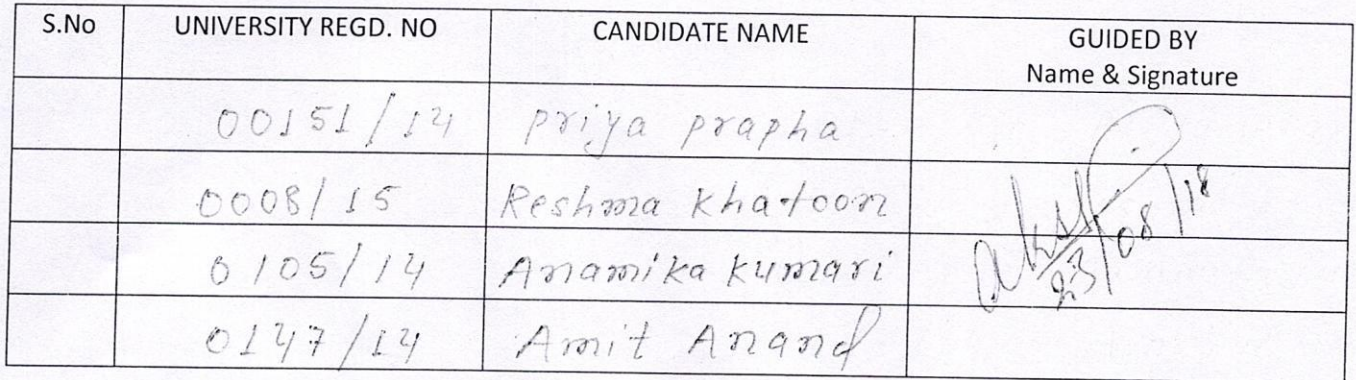 S.No UNIVERSITY REGD. NO CANDIDATE NAME GUIDED BY
Name & Signature
00151/14 Priya Prapha
0008/15 Reshma Khatoon
0105/14 Anamika Kumari
0147/14 Amit Anand
23/08/18